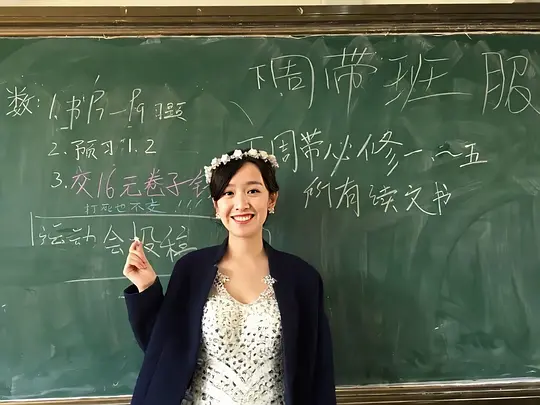 数: 1.书P7—P9习题
2.预习1.2
3.交16元卷子钱
打死也不交!!!
运动会投稿
下周带班服
下周带必修一~五
所有读文书